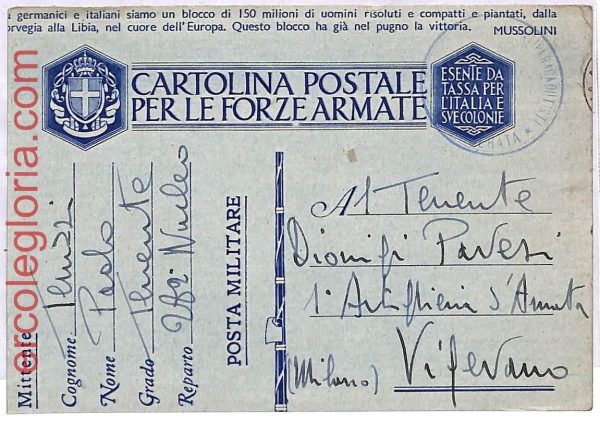 germanici e italiani siamo un blocco di 150 milioni di uomini risoluti e compatti e piantati, dalla
rvegia alla Libia, nel cuore dell'Europa. Questo blocco ha già nel pugno la vittoria. MUSSOLINI
CARTOLINA POSTALE
PER LE FORZE ARMATE
ESENTE DA
TASSA PER
L'ITALIA E
SVE COLONIE
Mittente
Cognome
Nome Paolo
Grado Tenente
Reparto Nucleo
POSTA MILITARE
Al Tenente
Dionigi Pavesi
1ª Artiglieria d'Armata
(Milano) Vigevano
ercolegloria.com